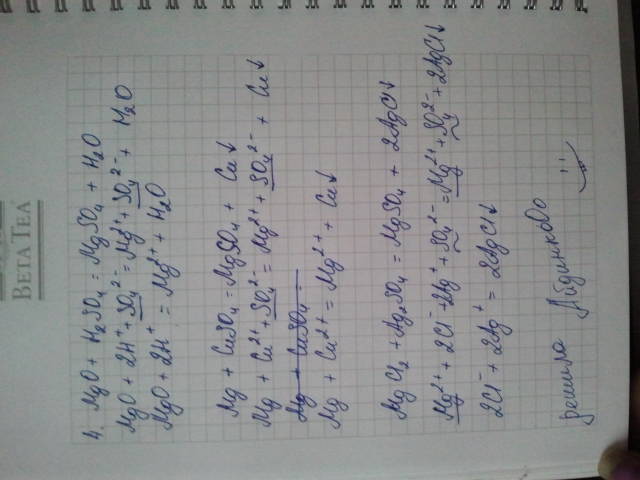 BETA TEA
4. MgO + H₂SO₄ = MgSO₄ + H₂O
MgO + 2H⁺ + SO₄²⁻ = Mg²⁺ + SO₄²⁻ + H₂O
MgO + 2H⁺ = Mg²⁺ + H₂O
Mg + CuSO₄ = MgSO₄ + Cu↓
Mg + Cu²⁺ + SO₄²⁻ = Mg²⁺ + SO₄²⁻ + Cu↓
Mg + CuSO₄ =
Mg + Cu²⁺ = Mg²⁺ + Cu↓
MgCl₂ + Ag₂SO₄ = MgSO₄ + 2AgCl↓
Mg²⁺ + 2Cl⁻ + 2Ag⁺ + SO₄²⁻ = Mg²⁺ + SO₄²⁻ + 2AgCl↓
2Cl⁻ + 2Ag⁺ = 2AgCl↓
решила